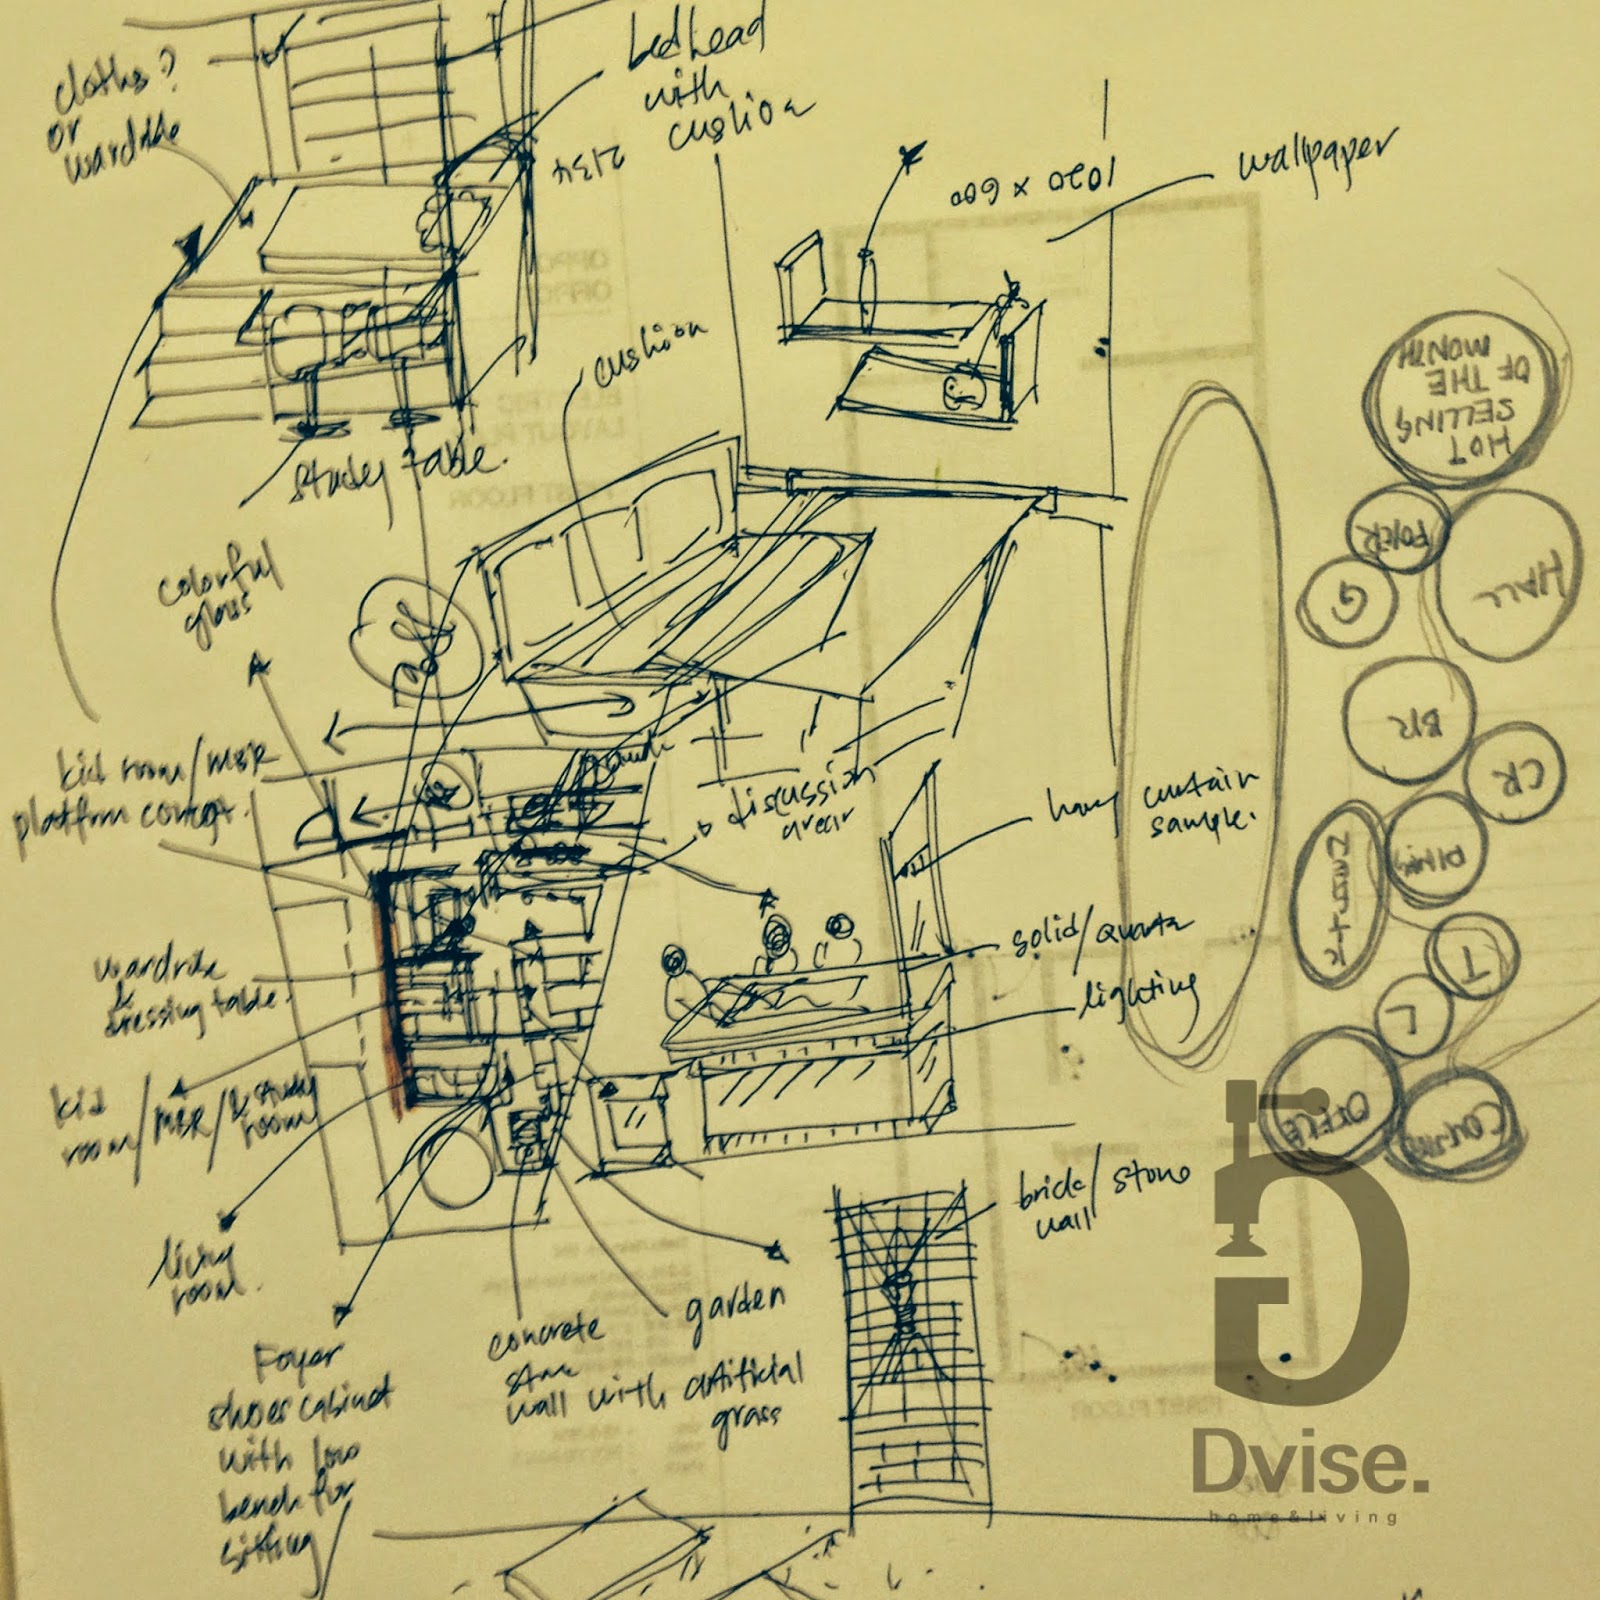 cloths?
or
wardrobe
bedhead
with
cushion
2134
1020 x 600
wallpaper
cushion
study table.
colorful
glass
HOT
SELLING
OF THE
MONTH
FOYER
HALL
G
BR
CR
DINING
T
L
OFFICE
kid room/MBR
platform concept.
discussion
area
hang curtain
sample.
wardrobe
&
dressing table.
solid/quartz
lighting
kid
room/MBR/study
room
brick/stone
wall
living
room.
garden
concrete
wall with artificial
grass
Foyer
shoes cabinet
with low
bench for
sitting
Dvise.
home&living